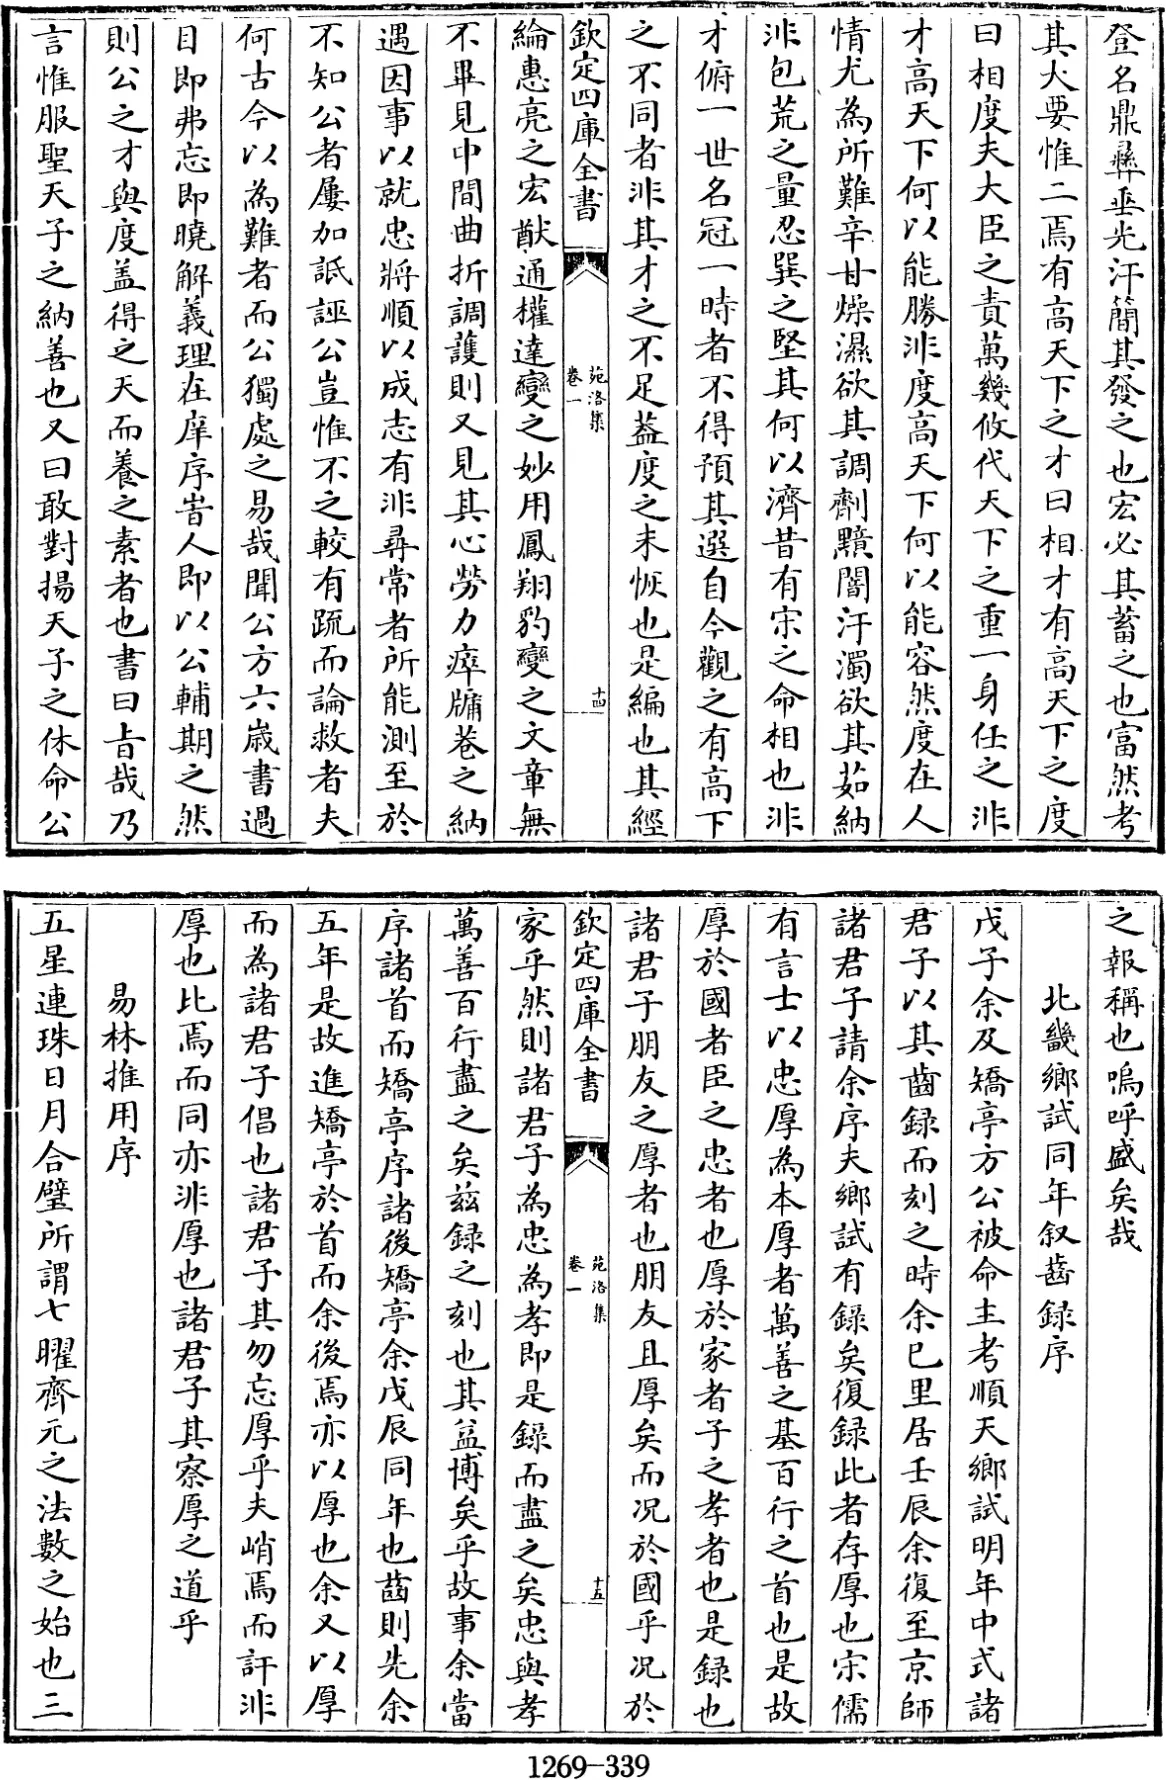 登名鼎彝垂光汗簡其發之也宏必其蓄之也富然考
其大要惟二焉有高天下之才曰相才有高天下之度
曰相度夫大臣之責萬幾攸代天下之重一身任之非
才高天下何以能勝非度高天下何以能容然度在人
情尤為所難辛甘燥濕欲其調劑黯闇汙濁欲其茹納
非包荒之量忍巽之堅其何以濟昔有宋之命相也非
才俯一世名冠一時者不得預其選自今觀之有高下
之不同者非其才之不足葢度之未恢也是編也其經
欽定四庫全書
苑洛集
卷一
十四
綸惠亮之宏猷通權達變之妙用鳳翔豹變之文章無
不畢見中間曲折調護則又見其心勞力瘁牖巷之納
遇因事以就忠將順以成志有非尋常者所能測至於
不知公者屢加詆誣公豈惟不之較有䟽而論救者夫
何古今以為難者而公獨處之易哉聞公方六歲書過
目即弗忘即曉解義理在庠序皆人即以公輔期之然
則公之才與度盖得之天而養之素者也書曰㫖哉乃
言惟服聖天子之納善也又曰敢對揚天子之休命公
之報稱也嗚呼盛矣哉
北畿鄉試同年叙齒録序
戊子余及矯亭方公被命主考順天鄉試明年中式諸
君子以其齒録而刻之時余已里居壬辰余復至京師
諸君子請余序夫鄉試有録矣復録此者存厚也宋儒
有言士以忠厚為本厚者萬善之基百行之首也是故
厚於國者臣之忠者也厚於家者子之孝者也是録也
諸君子朋友之厚者也朋友且厚矣而况於國乎况於
欽定四庫全書
苑洛集
卷一
十五
家乎然則諸君子為忠為孝即是錄而盡之矣忠與孝
萬善百行盡之矣茲録之刻也其益博矣乎故事余當
序諸首而矯亭序諸後矯亭余戊辰同年也齒則先余
五年是故進矯亭於首而余後焉亦以厚也余又以厚
而為諸君子倡也諸君子其勿忘厚乎夫峭焉而訐非
厚也比焉而同亦非厚也諸君子其察厚之道乎
易林推用序
五星連珠日月合璧所謂七曜齊元之法數之始也三
1269-339